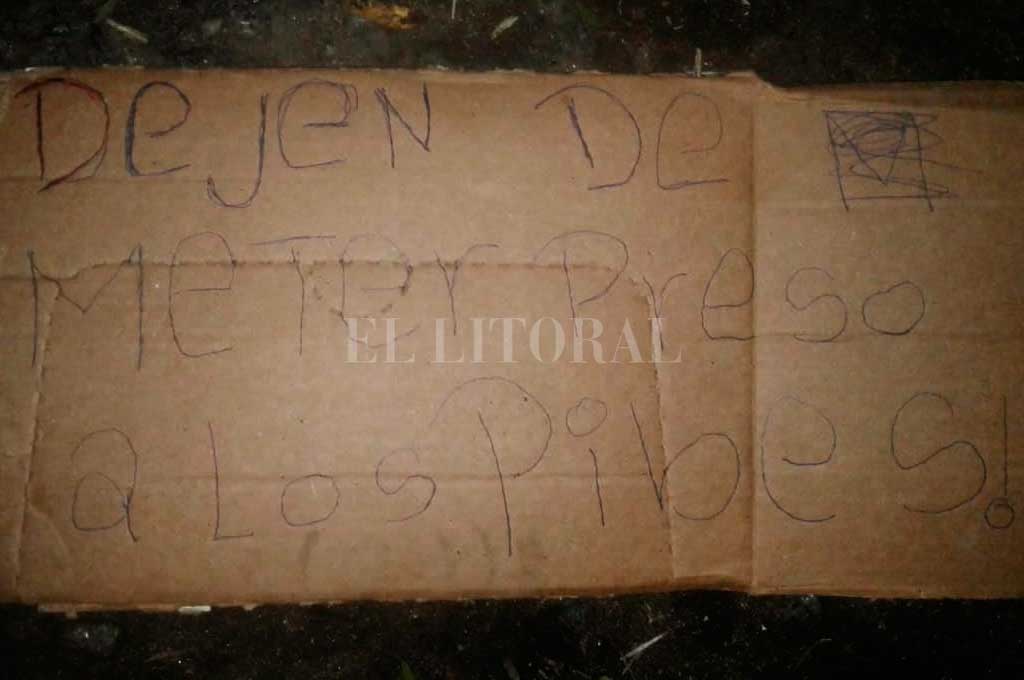 DeJeN De
MeTer Preso
EL LITORAL
a Los Pibes!